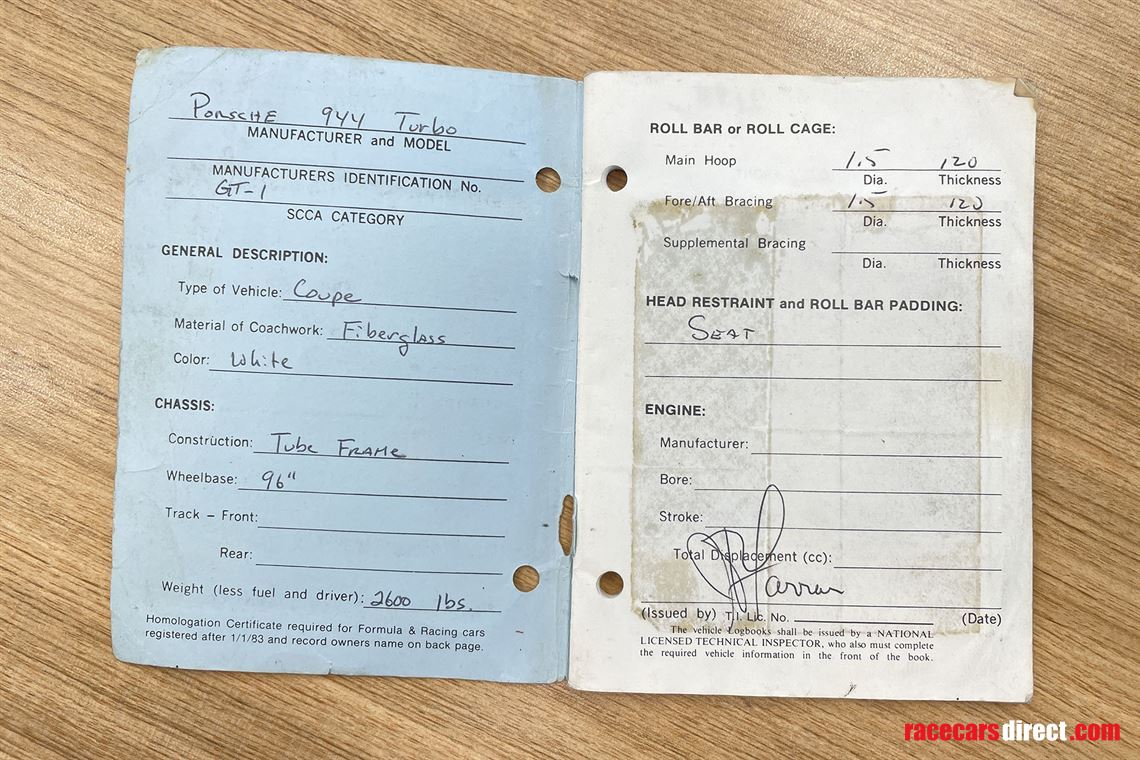 Porsche 944 Turbo
MANUFACTURER and MODEL
MANUFACTURERS IDENTIFICATION No.
GT-1
SCCA CATEGORY
GENERAL DESCRIPTION:
Type of Vehicle: Coupe
Material of Coachwork: Fiberglass
Color: White
CHASSIS:
Construction: Tube Frame
Wheelbase: 96"
Track – Front:
Rear:
Weight (less fuel and driver): 2600 lbs.
Homologation Certificate required for Formula & Racing cars
registered after 1/1/83 and record owners name on back page.
ROLL BAR or ROLL CAGE:
Main Hoop 1.5 120
Dia. Thickness
Fore/Aft Bracing 1.5 120
Dia. Thickness
Supplemental Bracing
Dia. Thickness
HEAD RESTRAINT and ROLL BAR PADDING:
Seat
ENGINE:
Manufacturer:
Bore:
Stroke:
Total Displacement (cc):
(Issued by) T.I. Lic. No. (Date)
The vehicle Logbooks shall be issued by a NATIONAL
LICENSED TECHNICAL INSPECTOR, who also must complete
the required vehicle information in the front of the book.
racecarsdirect.com